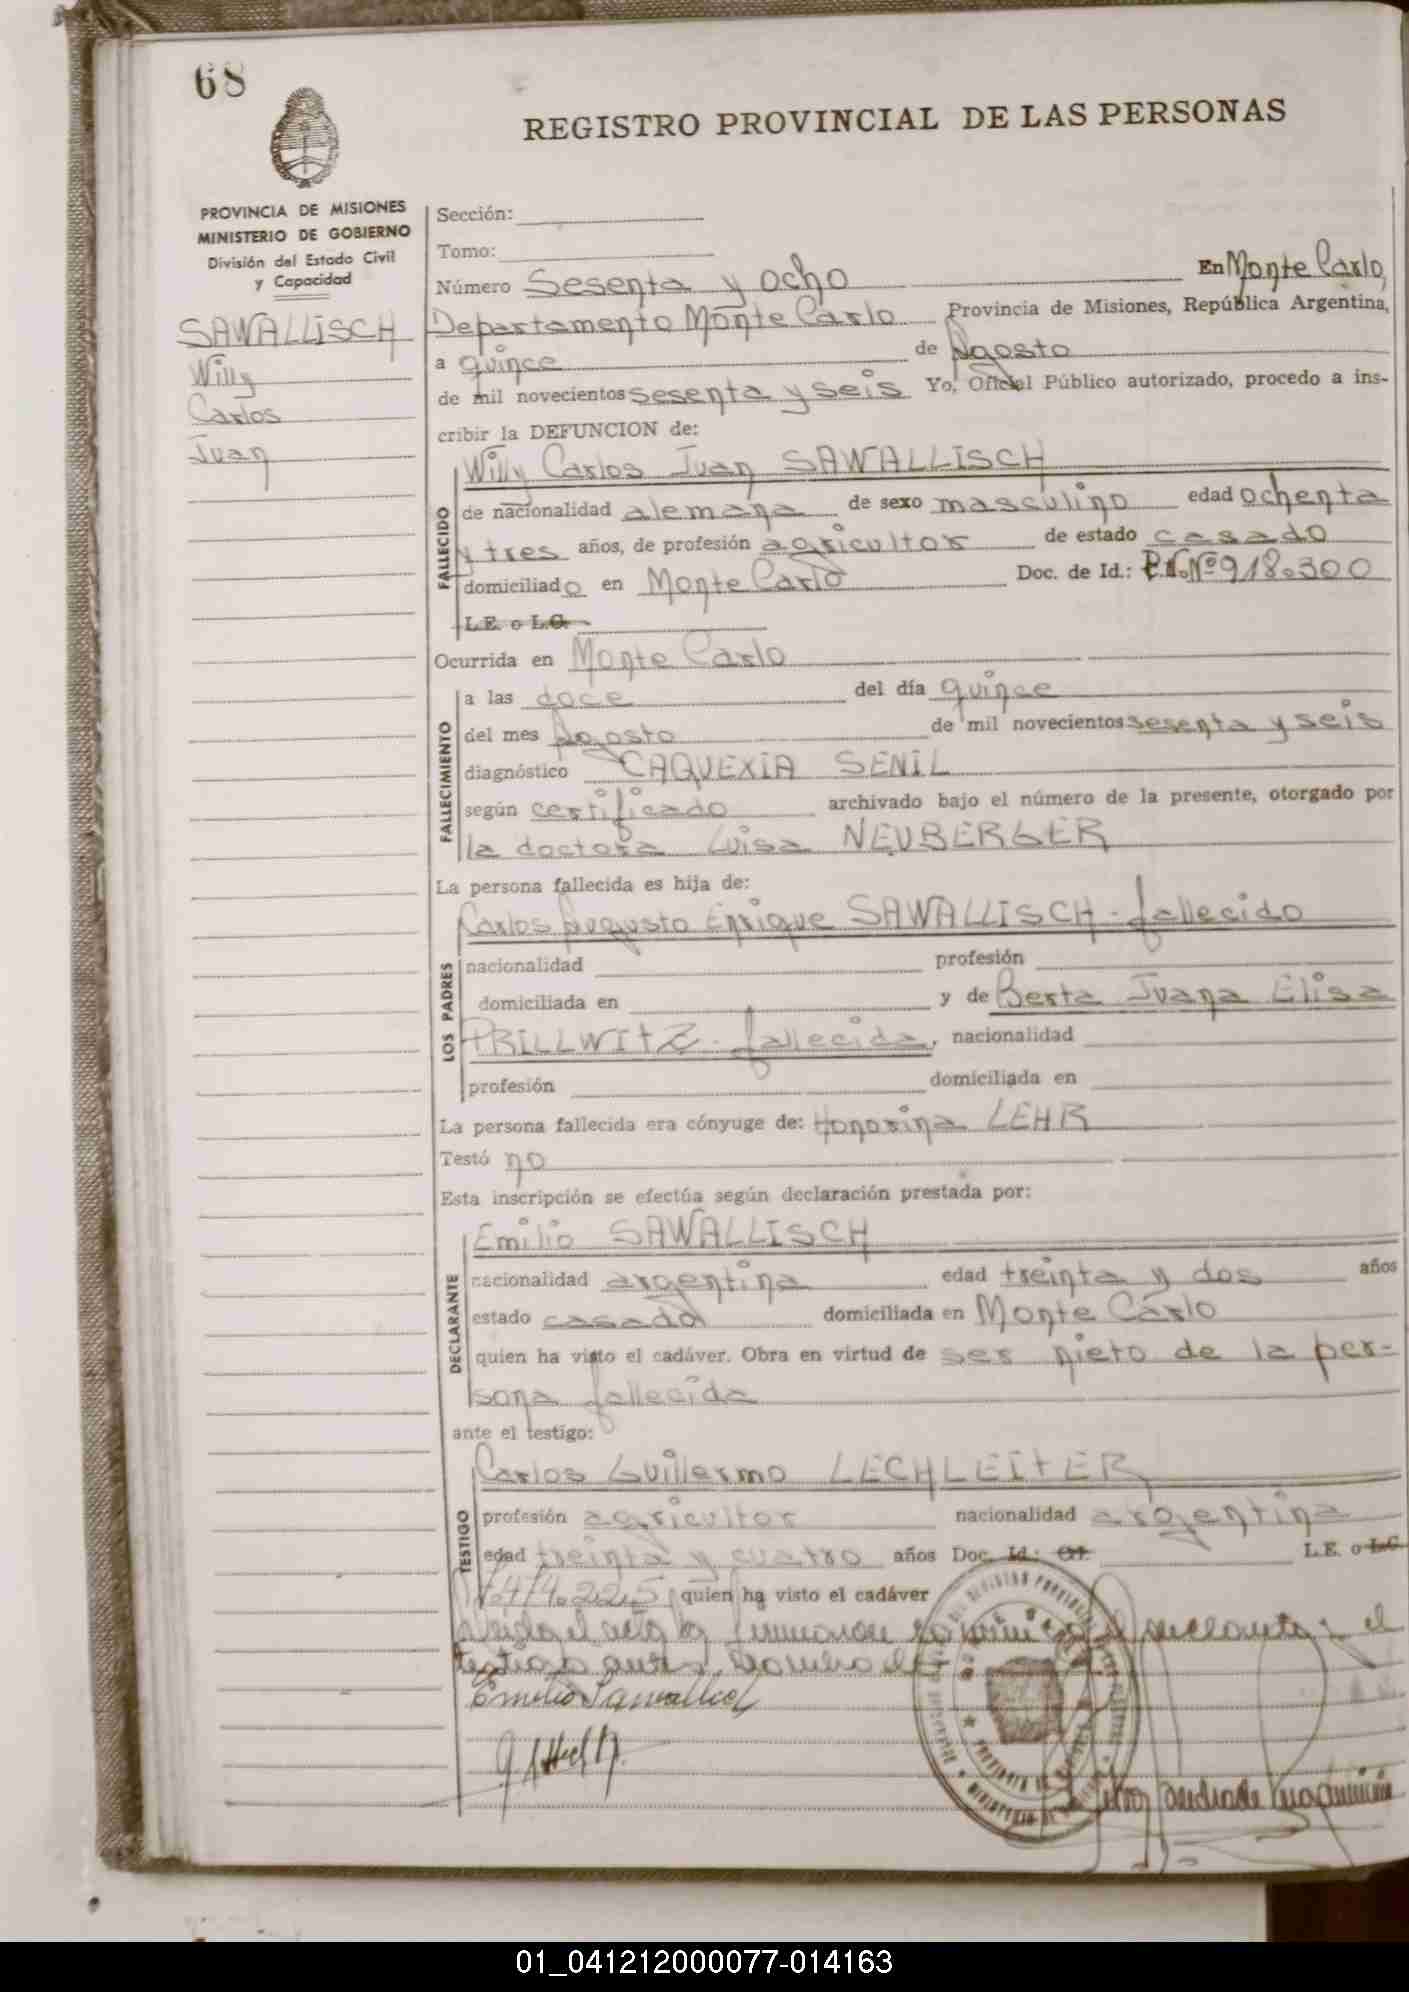 68
REGISTRO PROVINCIAL DE LAS PERSONAS
PROVINCIA DE MISIONES
MINISTERIO DE GOBIERNO
División del Estado Civil
y Capacidad
SAWALLISCH
Willy
Carlos
Juan
Sección:
Tomo:
Número Sesenta y ocho En Monte Carlo,
Departamento Monte Carlo Provincia de Misiones, República Argentina,
a quince de Agosto
de mil novecientos sesenta y seis Yo, Oficial Público autorizado, procedo a ins-
cribir la DEFUNCION de:
FALLECIDO
Willy Carlos Juan SAWALLISCH
de nacionalidad alemana de sexo masculino edad ochenta
y tres años, de profesión agricultor de estado casado
domiciliado en Monte Carlo Doc. de Id.: P.N.Nº918.300
L.E. o L.C.
Ocurrida en Monte Carlo
FALLECIMIENTO
a las doce del día quince
del mes Agosto de mil novecientos sesenta y seis
diagnóstico CAQUEXIA SENIL
según certificado archivado bajo el número de la presente, otorgado por
la doctora Luisa NEUBERGER
La persona fallecida es hija de:
LOS PADRES
Carlos Augusto Enrique SAWALLISCH - fallecido
nacionalidad profesión
domiciliada en y de Berta Juana Elisa
PRILLWITZ - fallecida, nacionalidad
profesión domiciliada en
La persona fallecida era cónyuge de: Honorina LEHR
Testó no
Esta inscripción se efectúa según declaración prestada por:
DECLARANTE
Emilio SAWALLISCH
nacionalidad argentina edad treinta y dos años
estado casado domiciliada en Monte Carlo
quien ha visto el cadáver. Obra en virtud de ser nieto de la per-
sona fallecida
ante el testigo:
TESTIGO
Carlos Guillermo LECHLEITER
profesión agricultor nacionalidad argentina
edad treinta y cuatro años Doc. Id.: L.E. o L.C.
quien ha visto el cadáver
Leída el acta la firmaron conmigo el declarante y el
testigo
Emilio Sawallisch
01_041212000077-014163